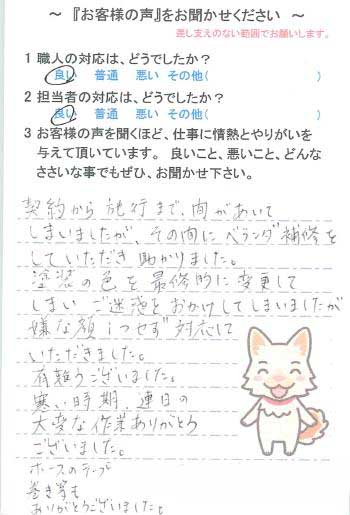 ～ 『お客様の声』をお聞かせください ～
差し支えのない範囲でお願いします。
1 職人の対応は、どうでしたか？
良い 普通 悪い その他( )
2 担当者の対応は、どうでしたか？
良い 普通 悪い その他( )
3 お客様の声を聞くほど、仕事に情熱とやりがいを
与えて頂いています。 良いこと、悪いこと、どんな
ささいな事でもぜひ、お聞かせ下さい。
契約から施行まで、間があいて
しまいましたが、その間にベランダ補修を
していただき助かりました。
塗装の色を最修的に変更して
しまい ご迷惑をおかけしてしまいましたが
嫌な顔1つせず対応して
いただきました。
有難うございました。
寒い時期、連日の
大変な作業ありがとう
ございました。
ホースのテープ
巻き等も
ありがとうございました。